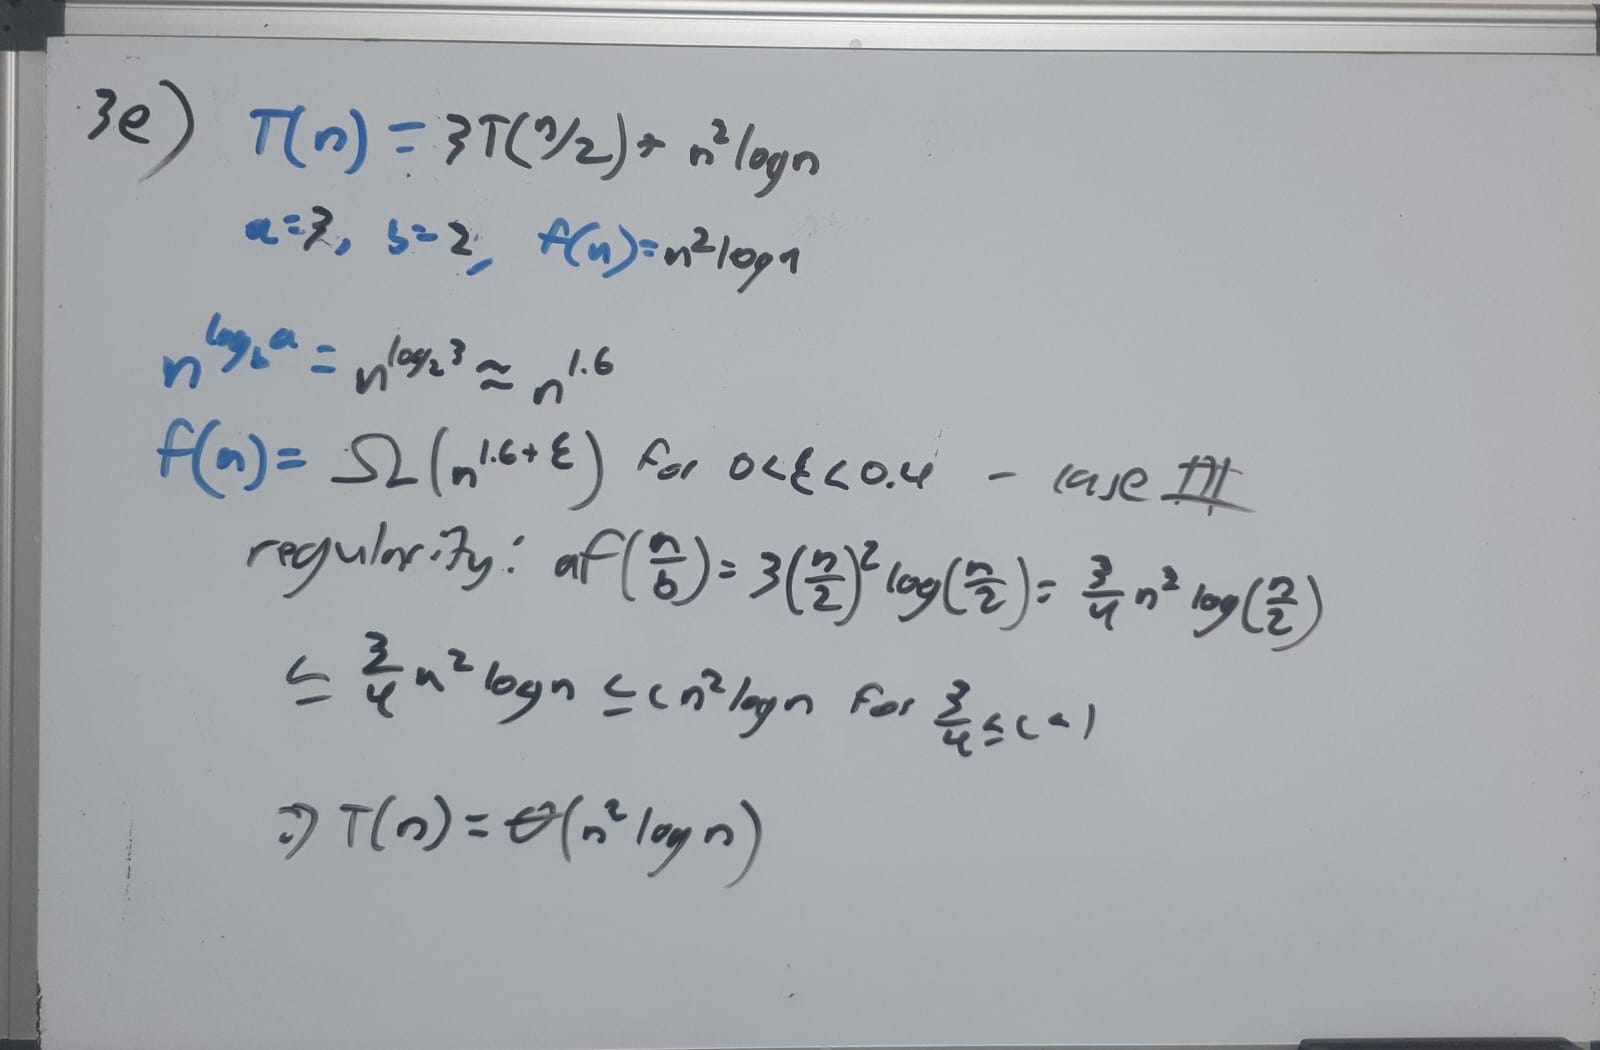 3e) T(n) = 3T(n/2) + n² log n
a=3, b=2, f(n)=n² log n
n^(log_b a) = n^(log₂ 3) ≈ n^1.6
f(n) = Ω(n^(1.6+ε) ) for 0<ε<0.4 - case III
regularity: af(n/b) = 3(n/2)² log(n/2) = 3/4 n² log(n/2)
≤ 3/4 n² log n ≤ c n² log n for 3/4 ≤ c < 1
⇒ T(n) = Θ(n² log n)